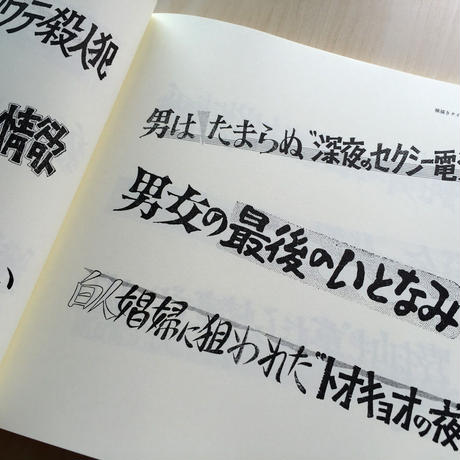 ワテ殺人犯
情欲
い
描き文
男はたまらぬ〝深夜のセクシー電
男女の最後のいとなみ
白人娼婦に狙われた〝トオキョオの夜